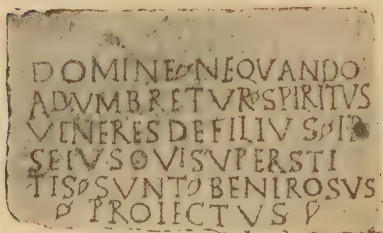 DOMINE NE QVANDO
ADVMBRETVR SPIRITVS
VENERES DE FILIVS IP
SEIVS QVI SVPERSTI
TIS SVNT BENIROSVS
PROIECTVS